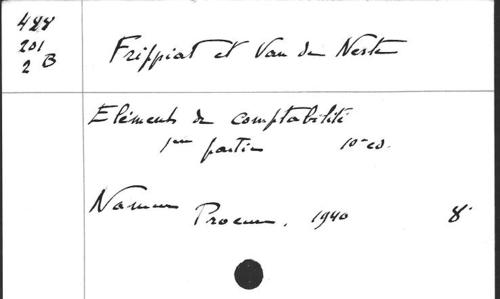 488
201
2 B
Frippiat et Van de Neste
Eléments de comptabilité
1ère partie 10e ed.
Namur Procure, 1940 8°